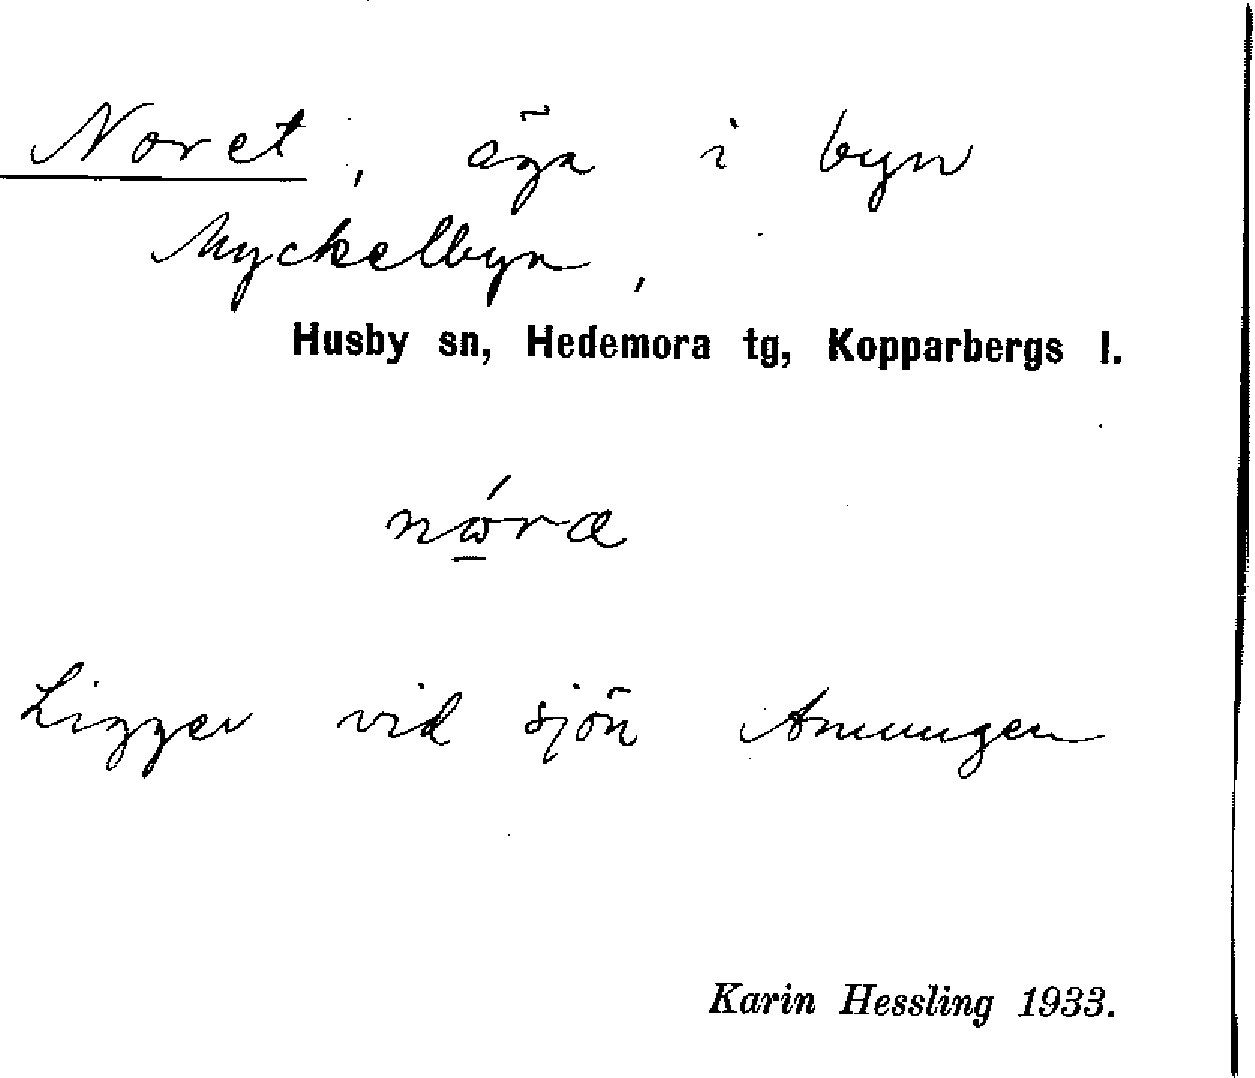 Noret, äga i byn
Myckelbyn,
Husby sn, Hedemora tg, Kopparbergs l.
Ligger vid sjön Amungen
Karin Hessling 1933.